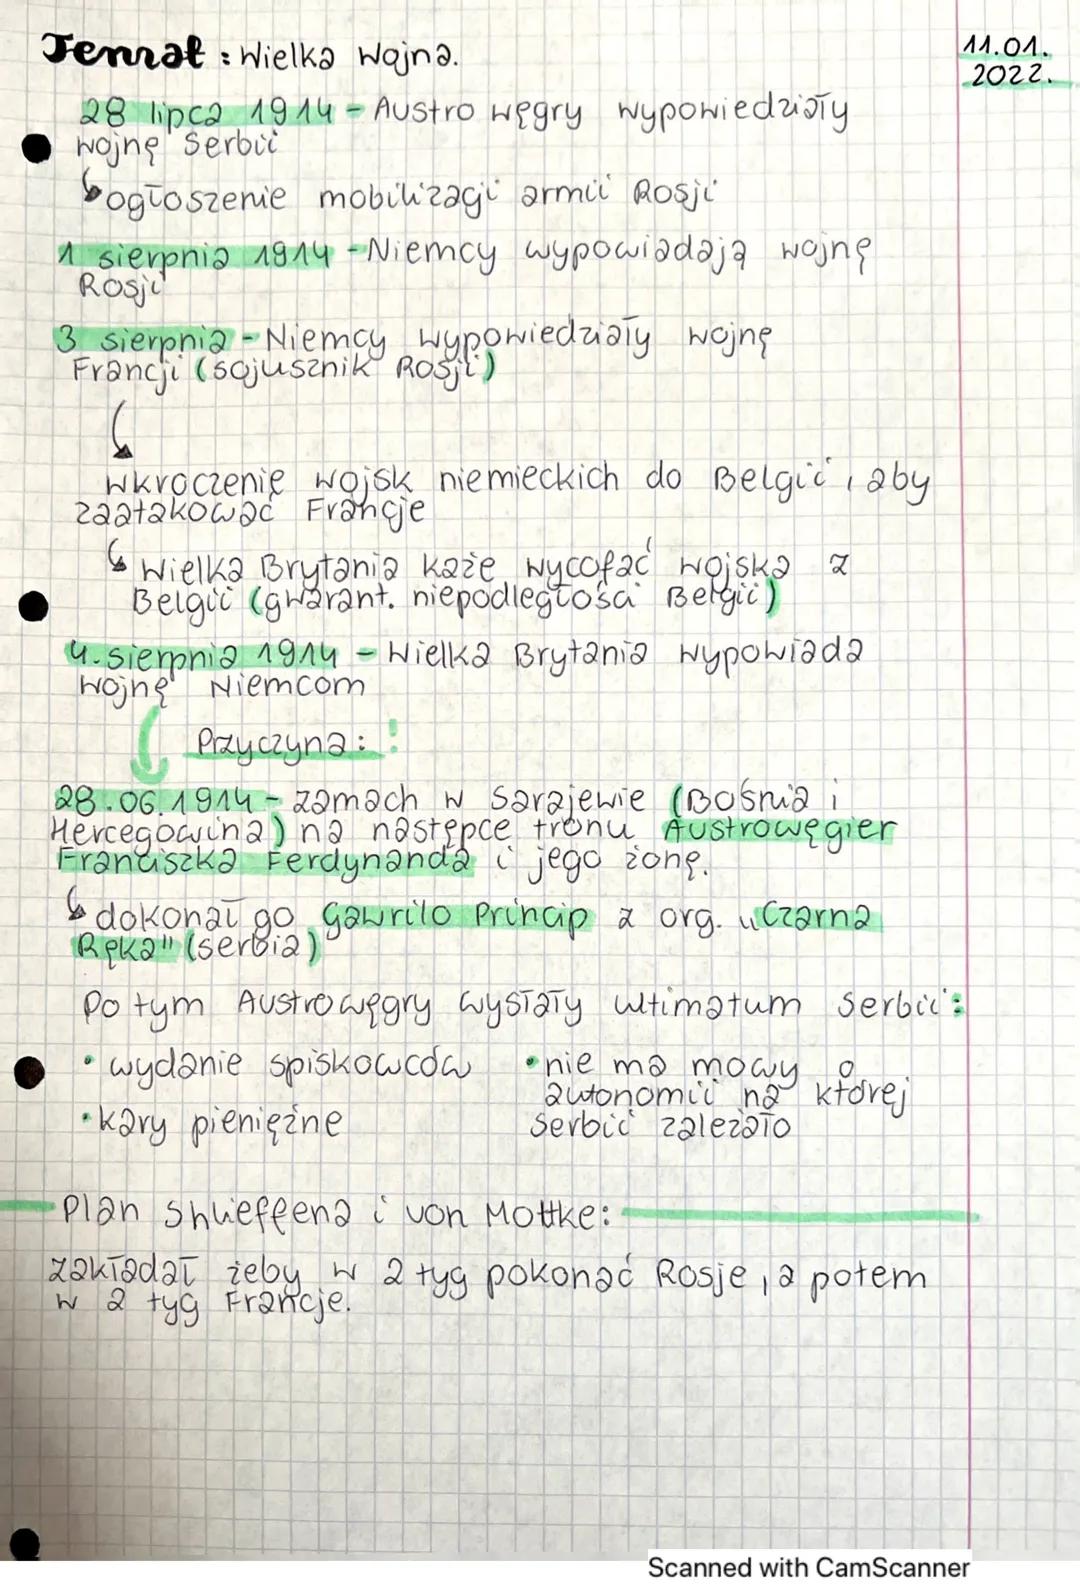 Temat: Wielka Wojna.
11.01.
2022.
28 lipca 1914 - Austro węgry wypowiedziały
wojnę Serbii
ogłoszenie mobilizacji armii Rosji
1 sierpnia 1914 - Niemcy wypowiadają wojnę
Rosji
3 sierpnia - Niemcy wypowiedziały wojnę
Francji (sojusznik Rosji)
wkroczenie wojsk niemieckich do Belgii, aby
zaatakować Francje
Wielka Brytania każe wycofać wojska z
Belgii (gwarant. niepodległości Belgii)
4. sierpnia 1914 - Wielka Brytania wypowiada
wojnę Niemcom
Przyczyna: !
28.06.1914 - zamach w Sarajewie (Bośnia i
Hercegowina) na następce tronu Austrowęgier
Franciszka Ferdynanda i jego żonę.
dokonał go Gawrilo Princip z org. "Czarna
Ręka" (serbia)
Po tym Austrowęgry wysłały ultimatum Serbii:
• wydanie spiskowców
• kary pieniężne
• nie ma mowy o
autonomii na której
Serbii zależało
Plan Shlieffena i von Moltke:
zakładał żeby w 2 tyg pokonać Rosje, a potem
w 2 tyg Francje.
Scanned with CamScanner